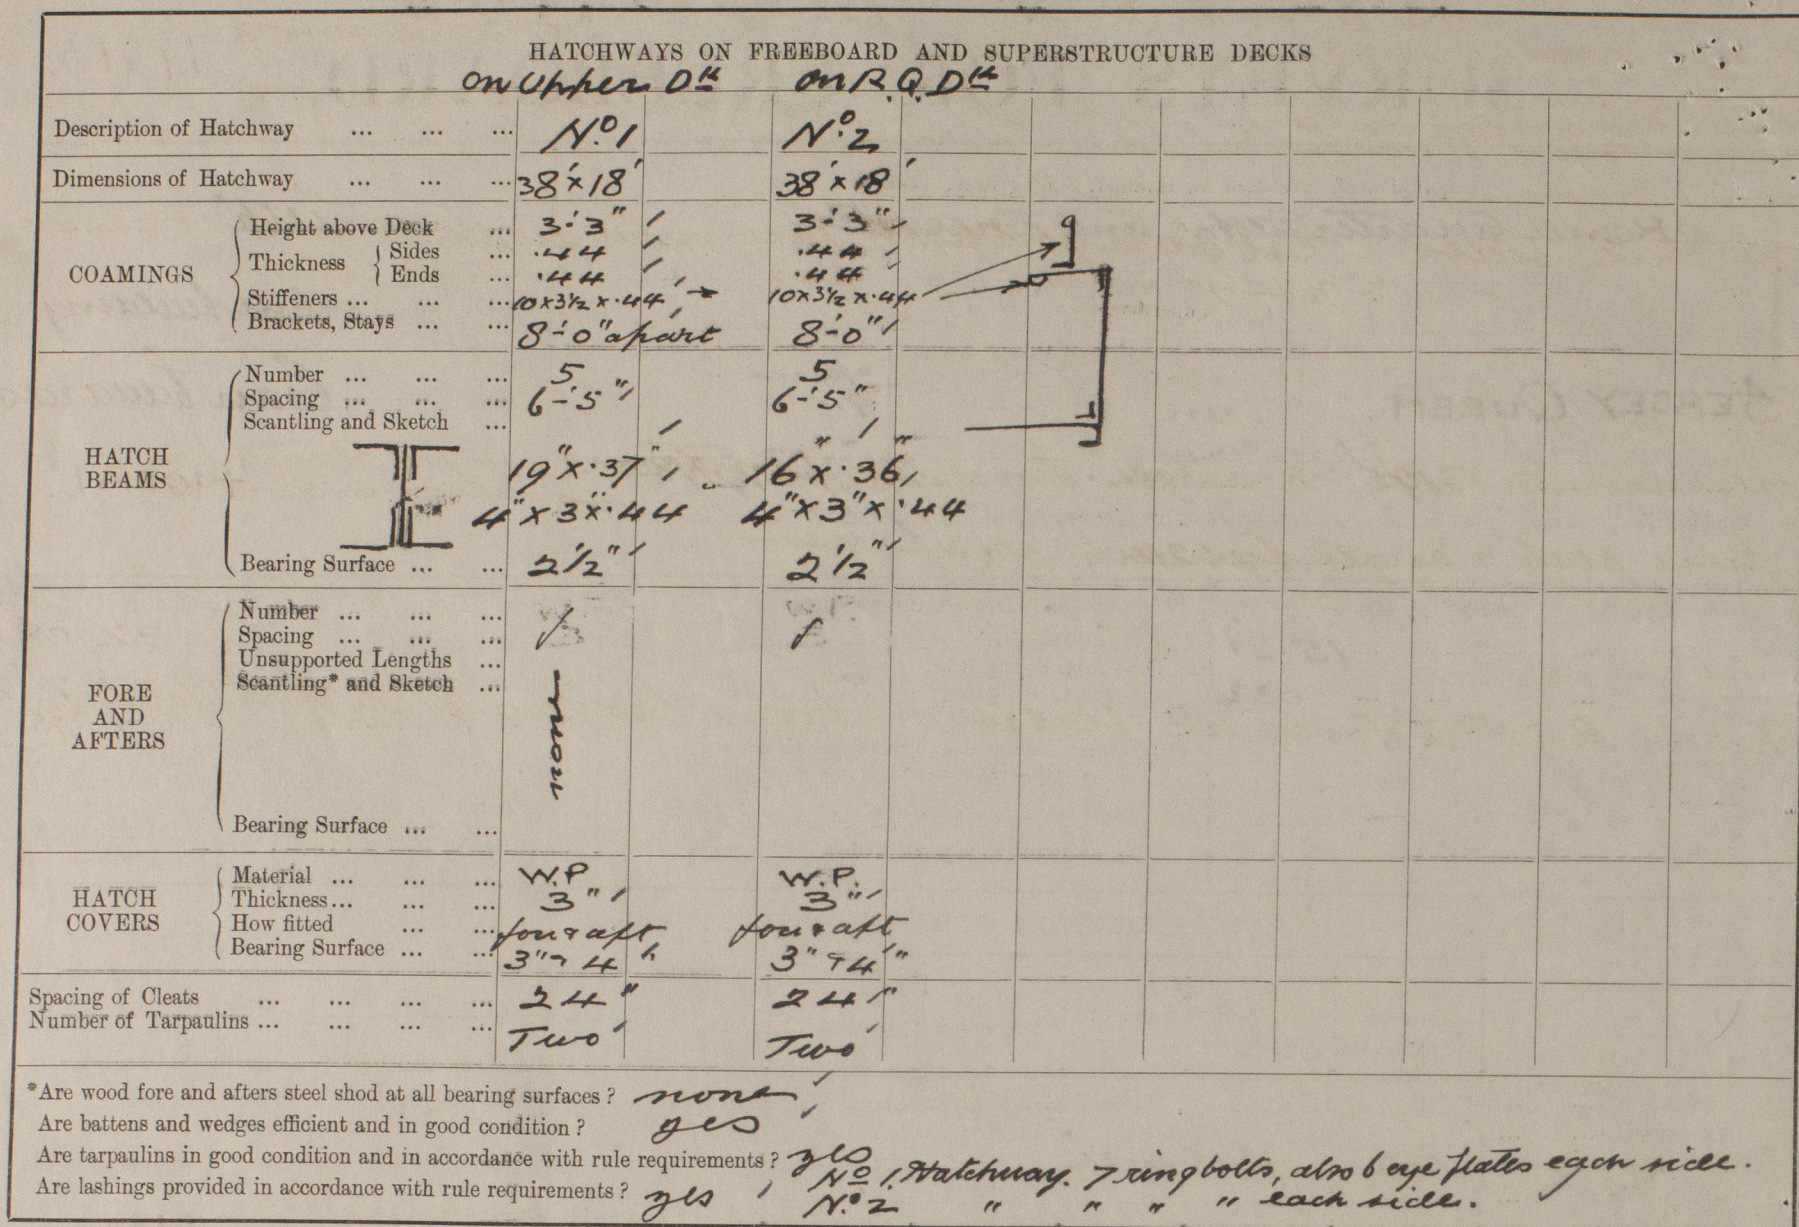 HATCHWAYS ON FREEBOARD AND SUPERSTRUCTURE DECKS
on Upper Dk on R.Q.Dk
Description of Hatchway ... ... ... No.1 No.2
Dimensions of Hatchway ... ... ... 38' x 18' 38' x 18'
COAMINGS
Height above Deck ... 3'-3" 3'-3"
Thickness Sides ... .44 .44
Ends ... .44 .44
Stiffeners ... ... ... 10 x 3½ x .44 10 x 3½ x .44
Brackets, Stays ... ... 8'-0" apart 8'-0"
HATCH BEAMS
Number ... ... ... 5 5
Spacing ... ... ... 6'-5" 6'-5"
Scantling and Sketch ...
19" x .37" 16" x .36"
4" x 3" x .44 4" x 3" x .44
Bearing Surface ... ... 2½" 2½"
FORE AND AFTERS
Number ... ... ...
Spacing ... ... ...
Unsupported Lengths ...
Scantling* and Sketch ...
none
Bearing Surface ... ...
HATCH COVERS
Material ... ... ... W.P. W.P.
Thickness ... ... ... 3" 3"
How fitted ... ... fore & aft fore & aft
Bearing Surface ... ... 3" & 4" 3" & 4"
Spacing of Cleats ... ... ... ... 24" 24"
Number of Tarpaulins ... ... ... ... Two Two
*Are wood fore and afters steel shod at all bearing surfaces ? none
Are battens and wedges efficient and in good condition ? yes
Are tarpaulins in good condition and in accordance with rule requirements ? yes
No 1. Hatchway. 7 ringbolts, also 6 eye plates each side.
Are lashings provided in accordance with rule requirements ? yes
No. 2 " " " " each side.